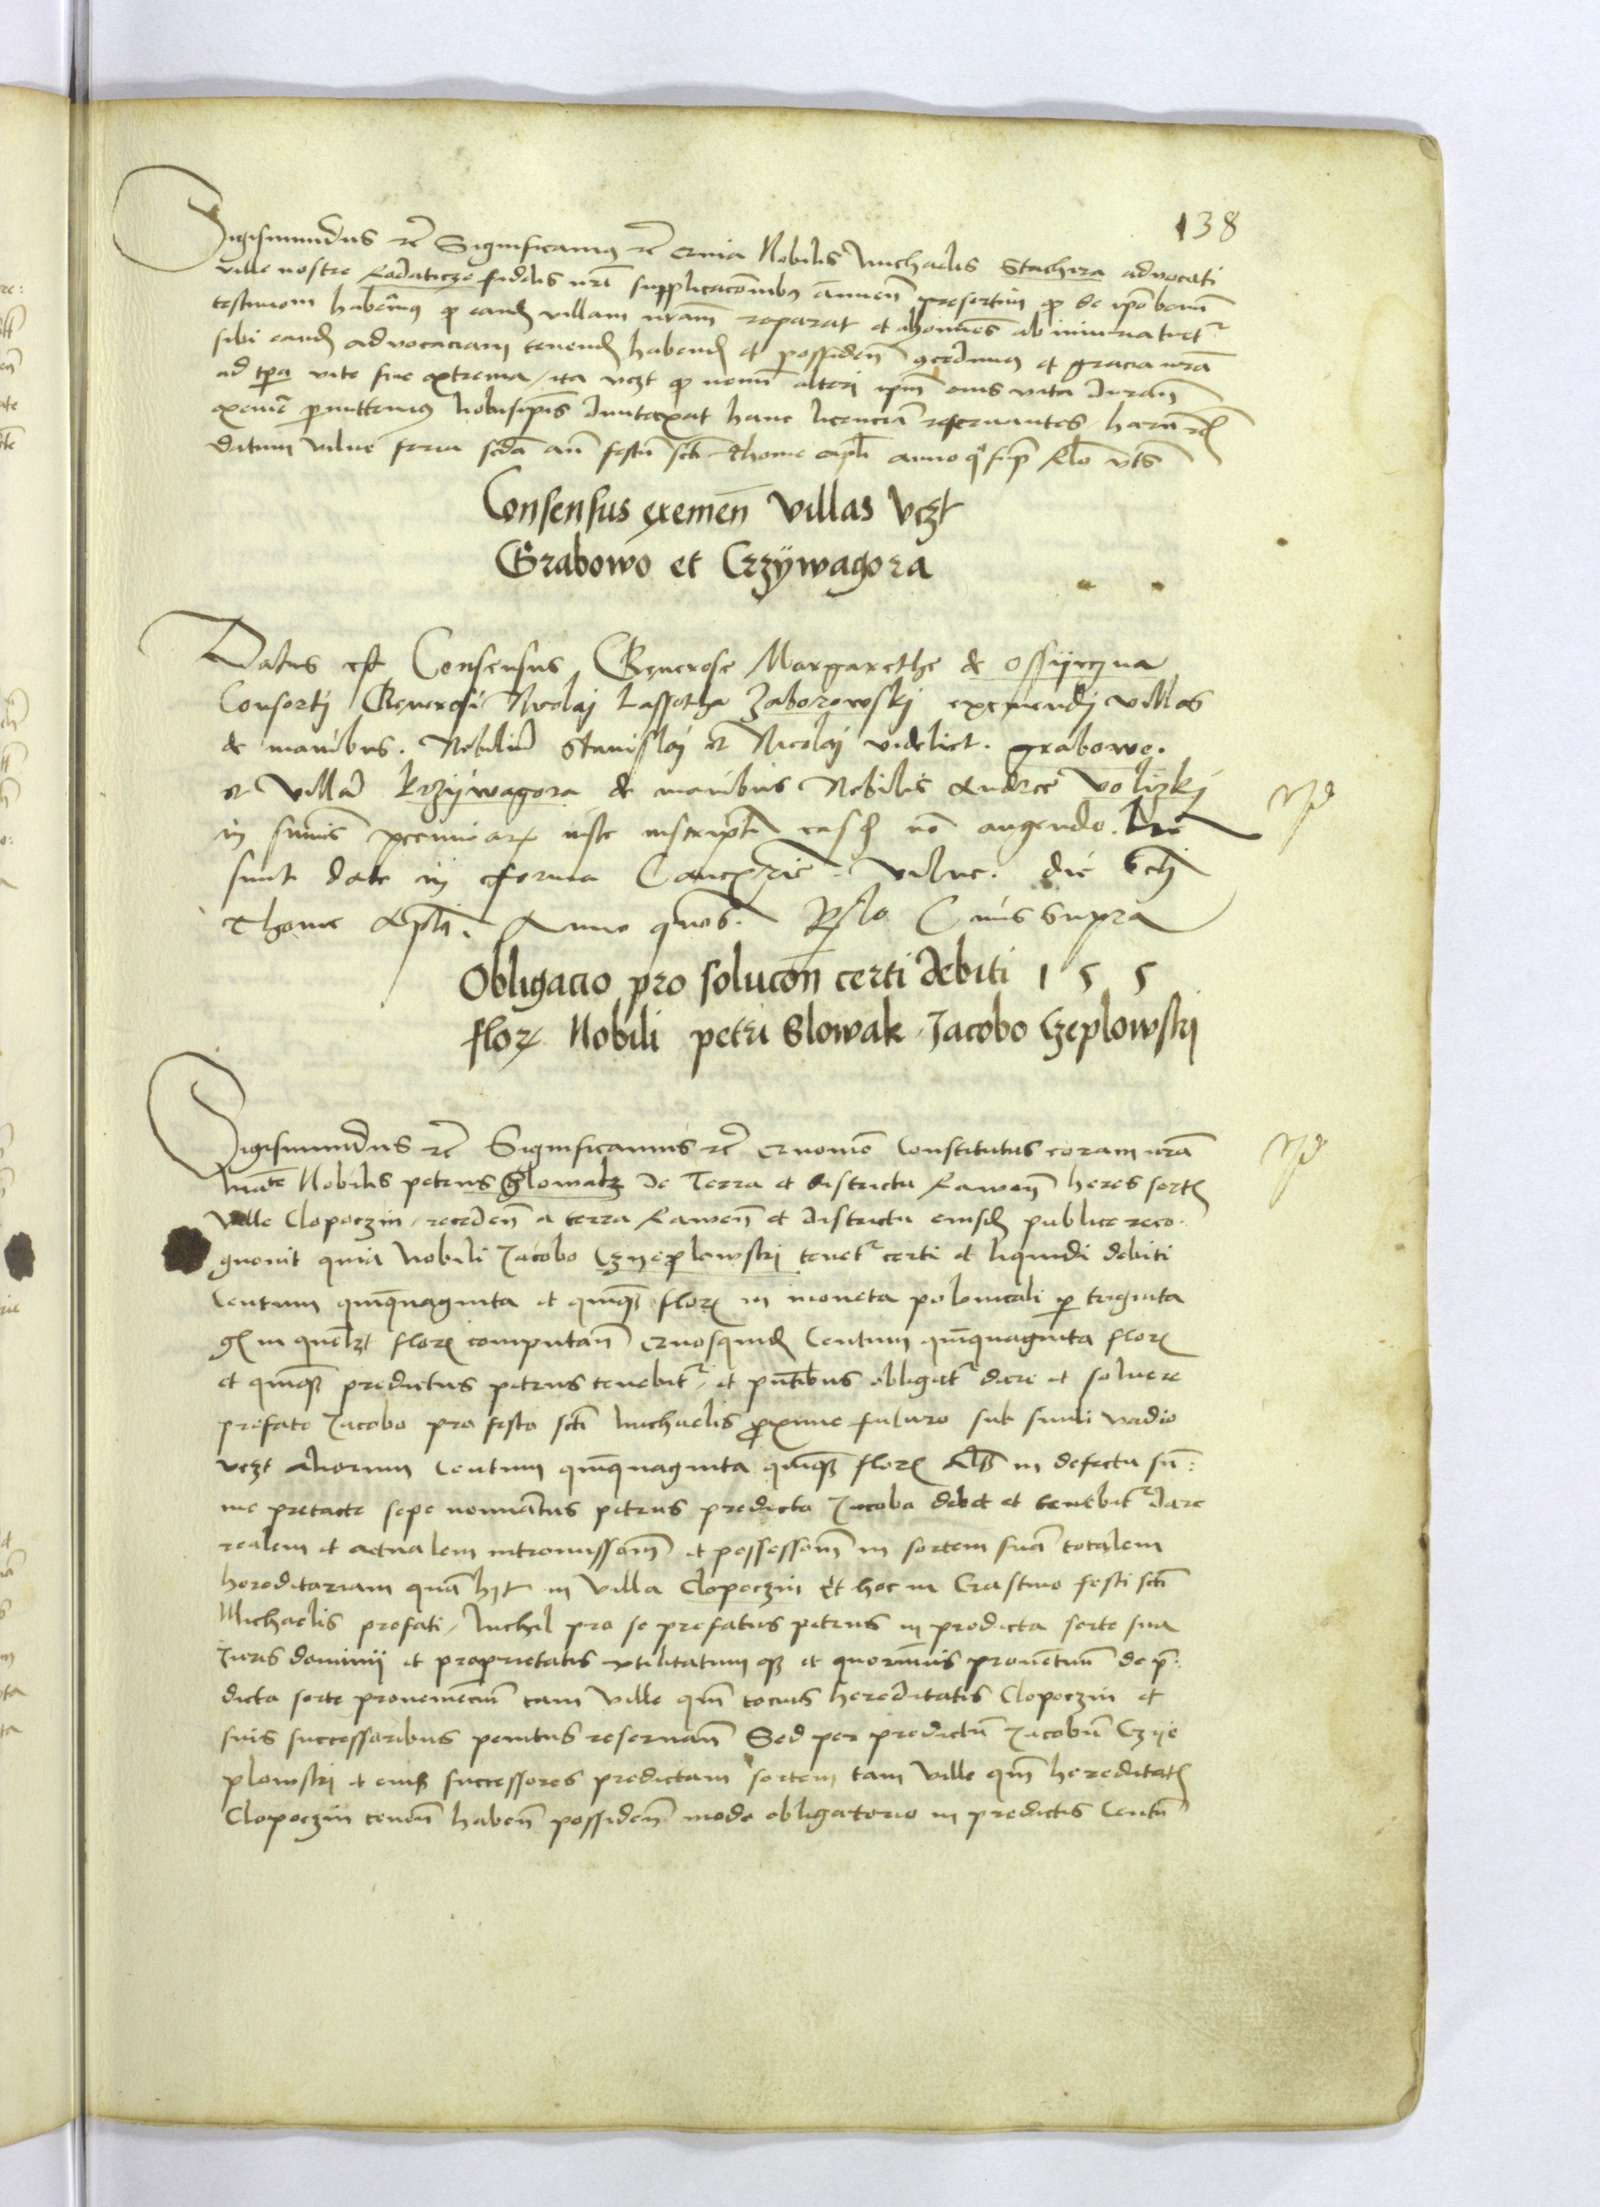 138
Sigismundus rc̄ Significamus rc̄ Quia Nobilis Michaelis Stachera advocati
ville nostre Radaticze fidelis nr̄i supplicacōnibus annuen̄ presertim qd̄ de ip̄o bonū
testimoīm habemus qd̄ eand̄ villam nr̄am reparat et homīes ab iniuria tuet̄
sibi eand̄ advocaciam tenend̄ habend̄ et possiden̄ cōcedimus et gracia nr̄a
ad tp̄a vite sue extrema, ita vczt qd̄ nemī alteri ip̄am eius vita duran̄
exemē permittemus nobisip̄is duntaxat hanc licenciā reservantes harū rc̄
datum Vilne feria scd̄a an̄ festū scti Thome apl̄i anno quo supra Rlo vts̄
Consensus exemen̄ Villas vczt
Grabowo et Crzÿwagora
Datus est Consensus Generose Margarethe de Ossÿeczna
Consorti Generosi Nicolaj Lassotha Zaborowskj exemendj villas
de manibus. Nobiliū Stanislaj et Nicolaj videlict. grabowo.
et Villā Krzÿwagora de manibus Nobilis Andree Volÿzkj
in sum̄is pecuniar̄ iuste inscript̄ easd̄ nō augendo. Lrē
sunt date in forma Cancellrie. Vilne. die Scti
Thome Apl̄i. Anno quo s. Rlo Cuius supra
Obligacio pro solucōn certi debiti 1 5 5
flor̄ Nobili petri Slowak Jacobo Czeplowski
Sigismundus rc̄ Significamus rc̄ Quomō Constitutus coram nr̄a
Ma͞te Nobilis petrus Glowacz de Terra et districtu Rawen̄ heres sort̄
Ville Clopoczin, receden̄ a terra Rawen̄ et districtu eiusd̄ publice reco.
gnovit quia Nobili Jacobo Czyeplowski tenet̄ certi et liquidi debiti
Centum quīquaginta et quīq̄ flor̄ in moneta polonicali p triginta
gr̄ in quēlzt flor̄ computan̄ Quosquid̄ Centum quīquaginta flor̄
et quīq̄ predictus petrus tenebit̄, et pn̄tibus obligat̄ dare et solvere
prefato Jacobo pro festo scti Michaelis proxime futuro sub simili vadio
vczt aliorum Centum quīquaginta quīq̄ flor̄ Alias in defectu sū:
me pretacte sepe nominatus petrus predicto Jacobo debet et tenebit̄ dare
realem et actualem intromissōem et possessōem in sortem suā totalem
hereditariam quā hzt in Villa Clopoczin Et hoc in Crastino festi scti
Michaelis prefati, Nichil pro se prefatus petrus in predicta sorte sua
Juris dominij et proprietatis utilitatum q̄ et quorumvis proventuū de p̄.
dicta sorte provenienciū tam Ville qm̄ tocius hereditatis Clopoczin et
suis successoribus penitus reservan̄ Sed per predictū Jacobū Czÿe
plowski et eius successores predictam sortem tam Ville qm̄ hereditat̄
Clopoczin tenen̄ haben̄ possiden̄ modo obligatorio in predictis Centū